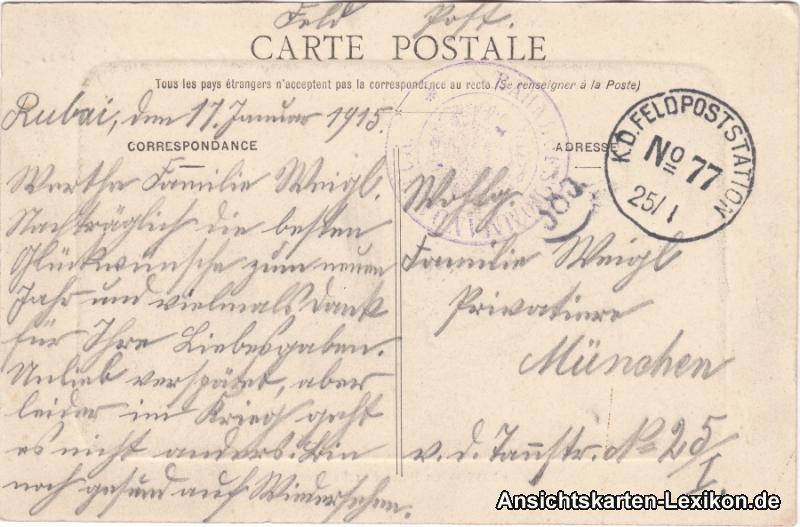 Feld Post.
CARTE POSTALE
Tous les pays étrangers n'acceptent pas la correspondance au recto (Se renseigner à la Poste)
Rubai, den 17. Januar 1915.
CORRESPONDANCE
Werthe Familie Weigl.
Nachträglich die besten
Glückwünsche zum neuen
Jahr und vielmals Dank
für Ihre Liebesgaben.
Unlieb verspätet, aber
leider im Krieg geht
es nicht anders. Bin
noch gesund auf Wiedersehen.
ADRESSE
K.D. FELDPOSTSTATION
No 77
25/1
Wohlg.
Familie Weigl
Privatiere
München
v. d. Tannstr. No 25/I.
Ansichtskarten-Lexikon.de